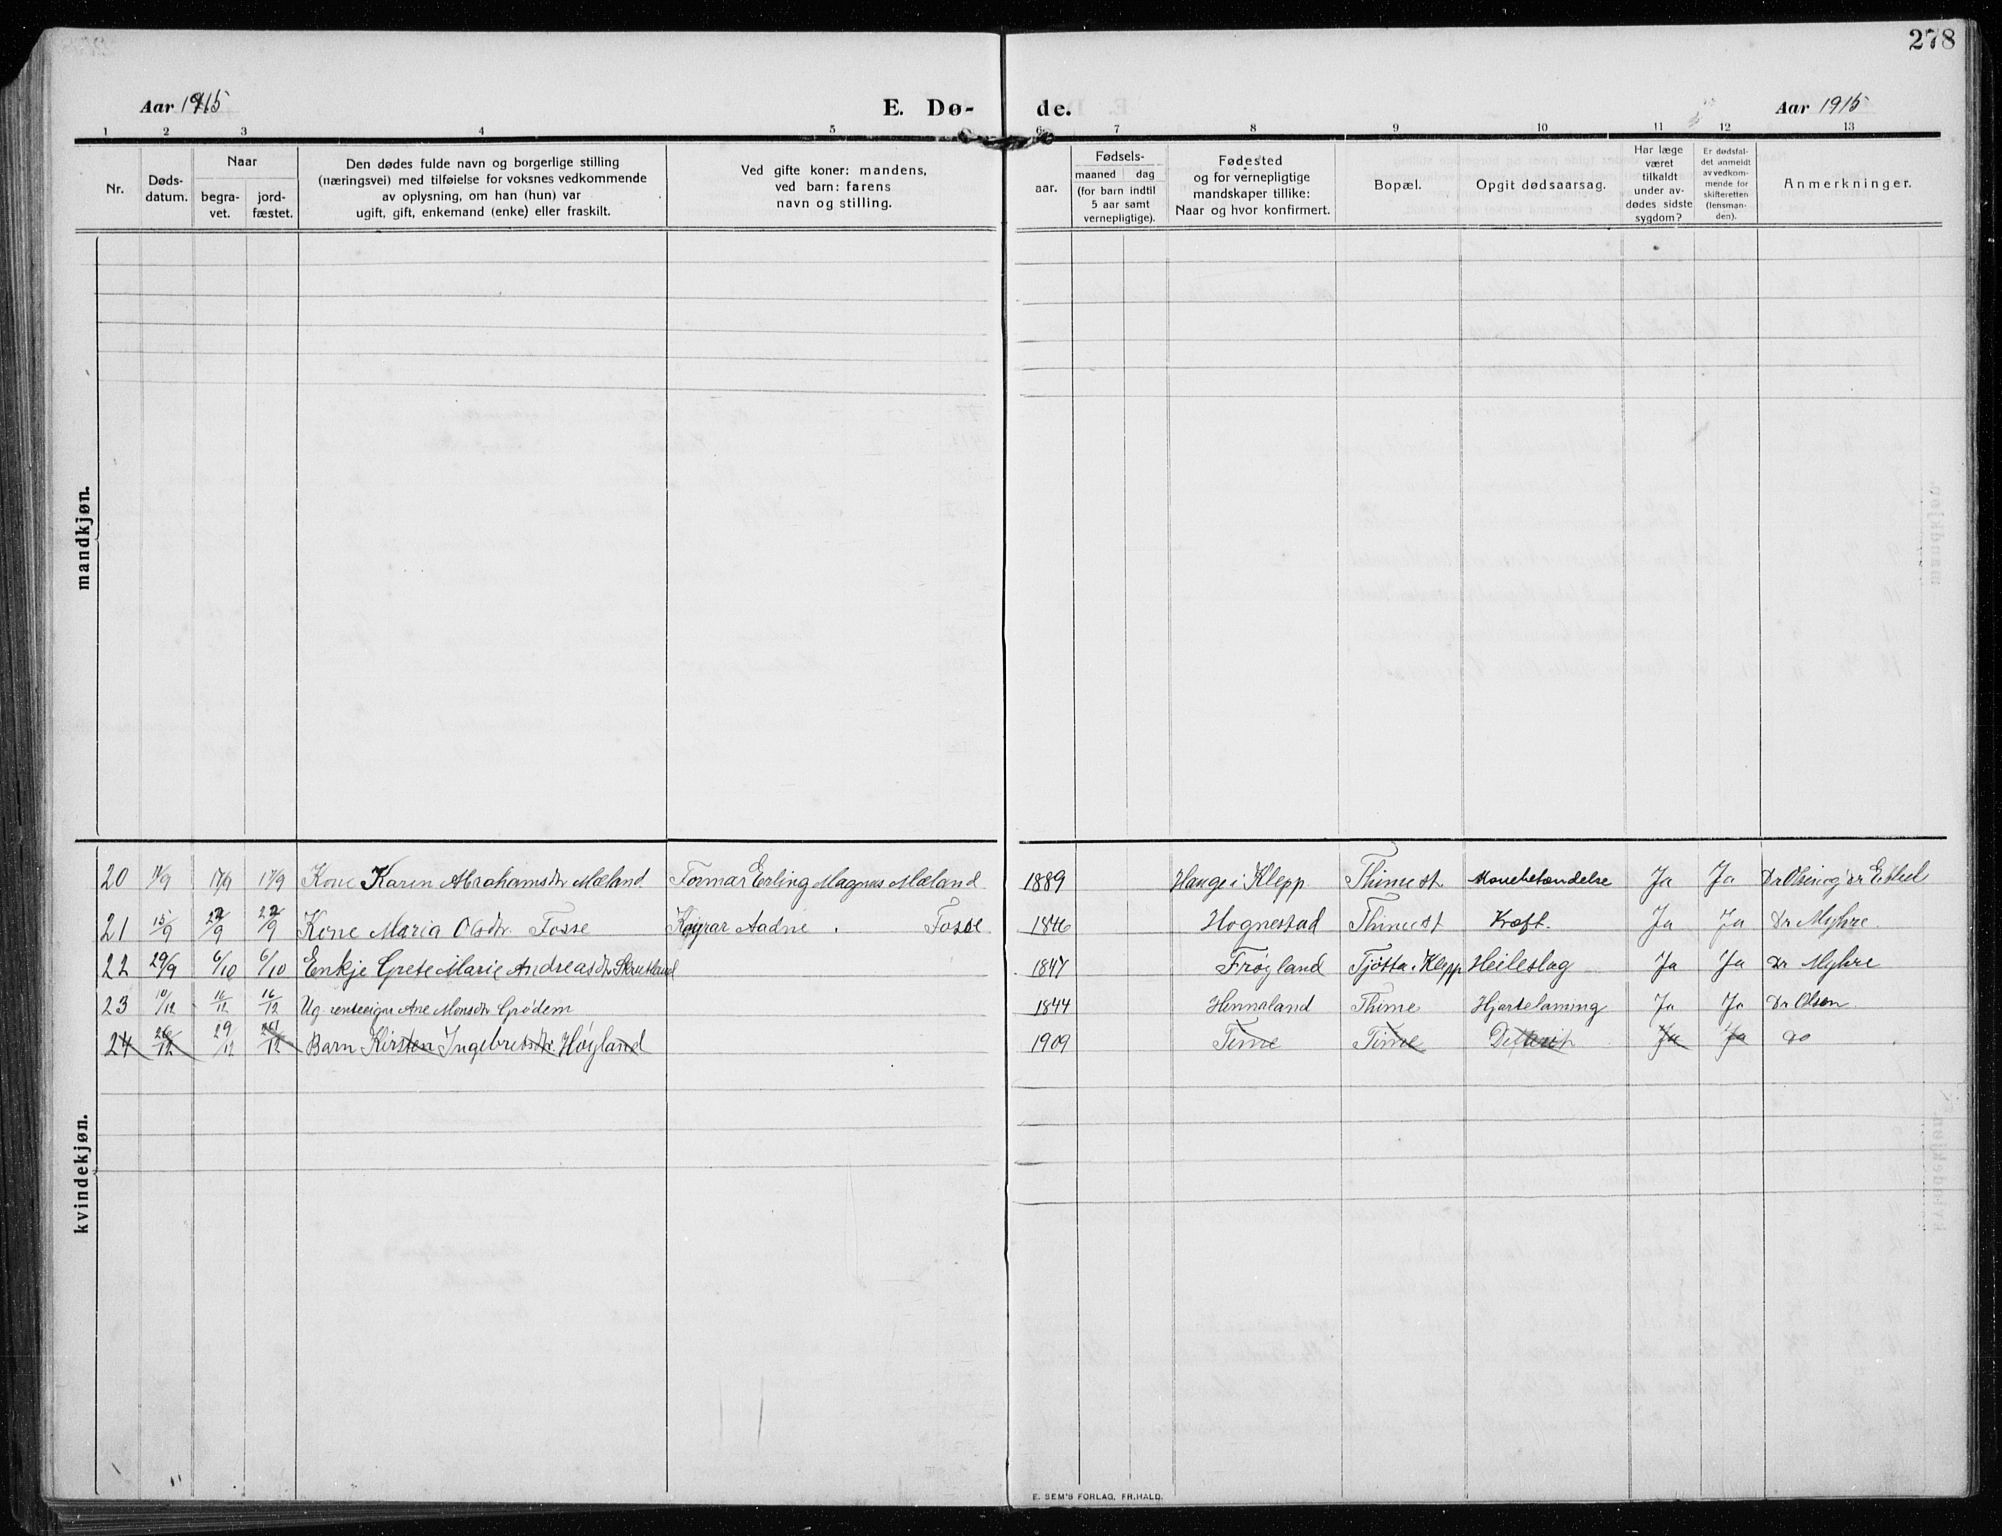 278
Aar 1915 E. Dø- de. Aar 1915
1 2 3 4 5 6 7 8 9 10 11 12 13
Nr.
Døds-
datum.
Naar
begra-
vet.
jord-
fæstet.
Den dødes fulde navn og borgerlige stilling
(næringsvei) med tilføielse for voksnes vedkommende
av oplysning, om han (hun) var
ugift, gift, enkemand (enke) eller fraskilt.
Ved gifte koner: mandens,
ved barn: farens
navn og stilling.
aar.
Fødsels-
maaned dag
(for barn indtil
5 aar samt
vernepligtige).
Fødested
og for vernepligtige
mandskaper tillike:
Naar og hvor konfirmert.
Bopæl.
Opgit dødsaarsag.
Har læge
været
tilkaldt
under av-
dødes sidste
sygdom?
Er dødsfal-
det anmeldt
av vedkom-
mende for
skifteretten
(lensman-
den).
Anmerkninger.
mandkjøn.
kvindekjøn.
20 11/9 17/9 17/9 Kone Karen Abrahamsdtr Mæland Formar Erling Magnus Mæland 1889 Hauge i Klepp Thimest Mavebetændelse Ja Ja Dr Olsen og dr
21 15/9 22/9 22/9 Kone Maria Olsdtr. Fosse Aadne Fosse 1846 Hognestad Thimest Kræft. Ja Ja Dr Myhre.
22 29/9 6/10 6/10 Enkje Grete Marie Andreasdtr Skrutland 1847 Frøyland Tjøtta i Klepp Heileslag Ja Ja Dr Myhre
23 10/12 16/12 16/12 Ug. Ane Monsdtr Grødem 1844 Hennaland Thime Hjartelaming Ja Ja Dr Olsen
24 26/12 29/12 29/12 Barn Kirsten Ingebretsdtr Høyland 1909 Time Time Difterit Ja Ja do
E. SEM'S FORLAG, FR.HALD.